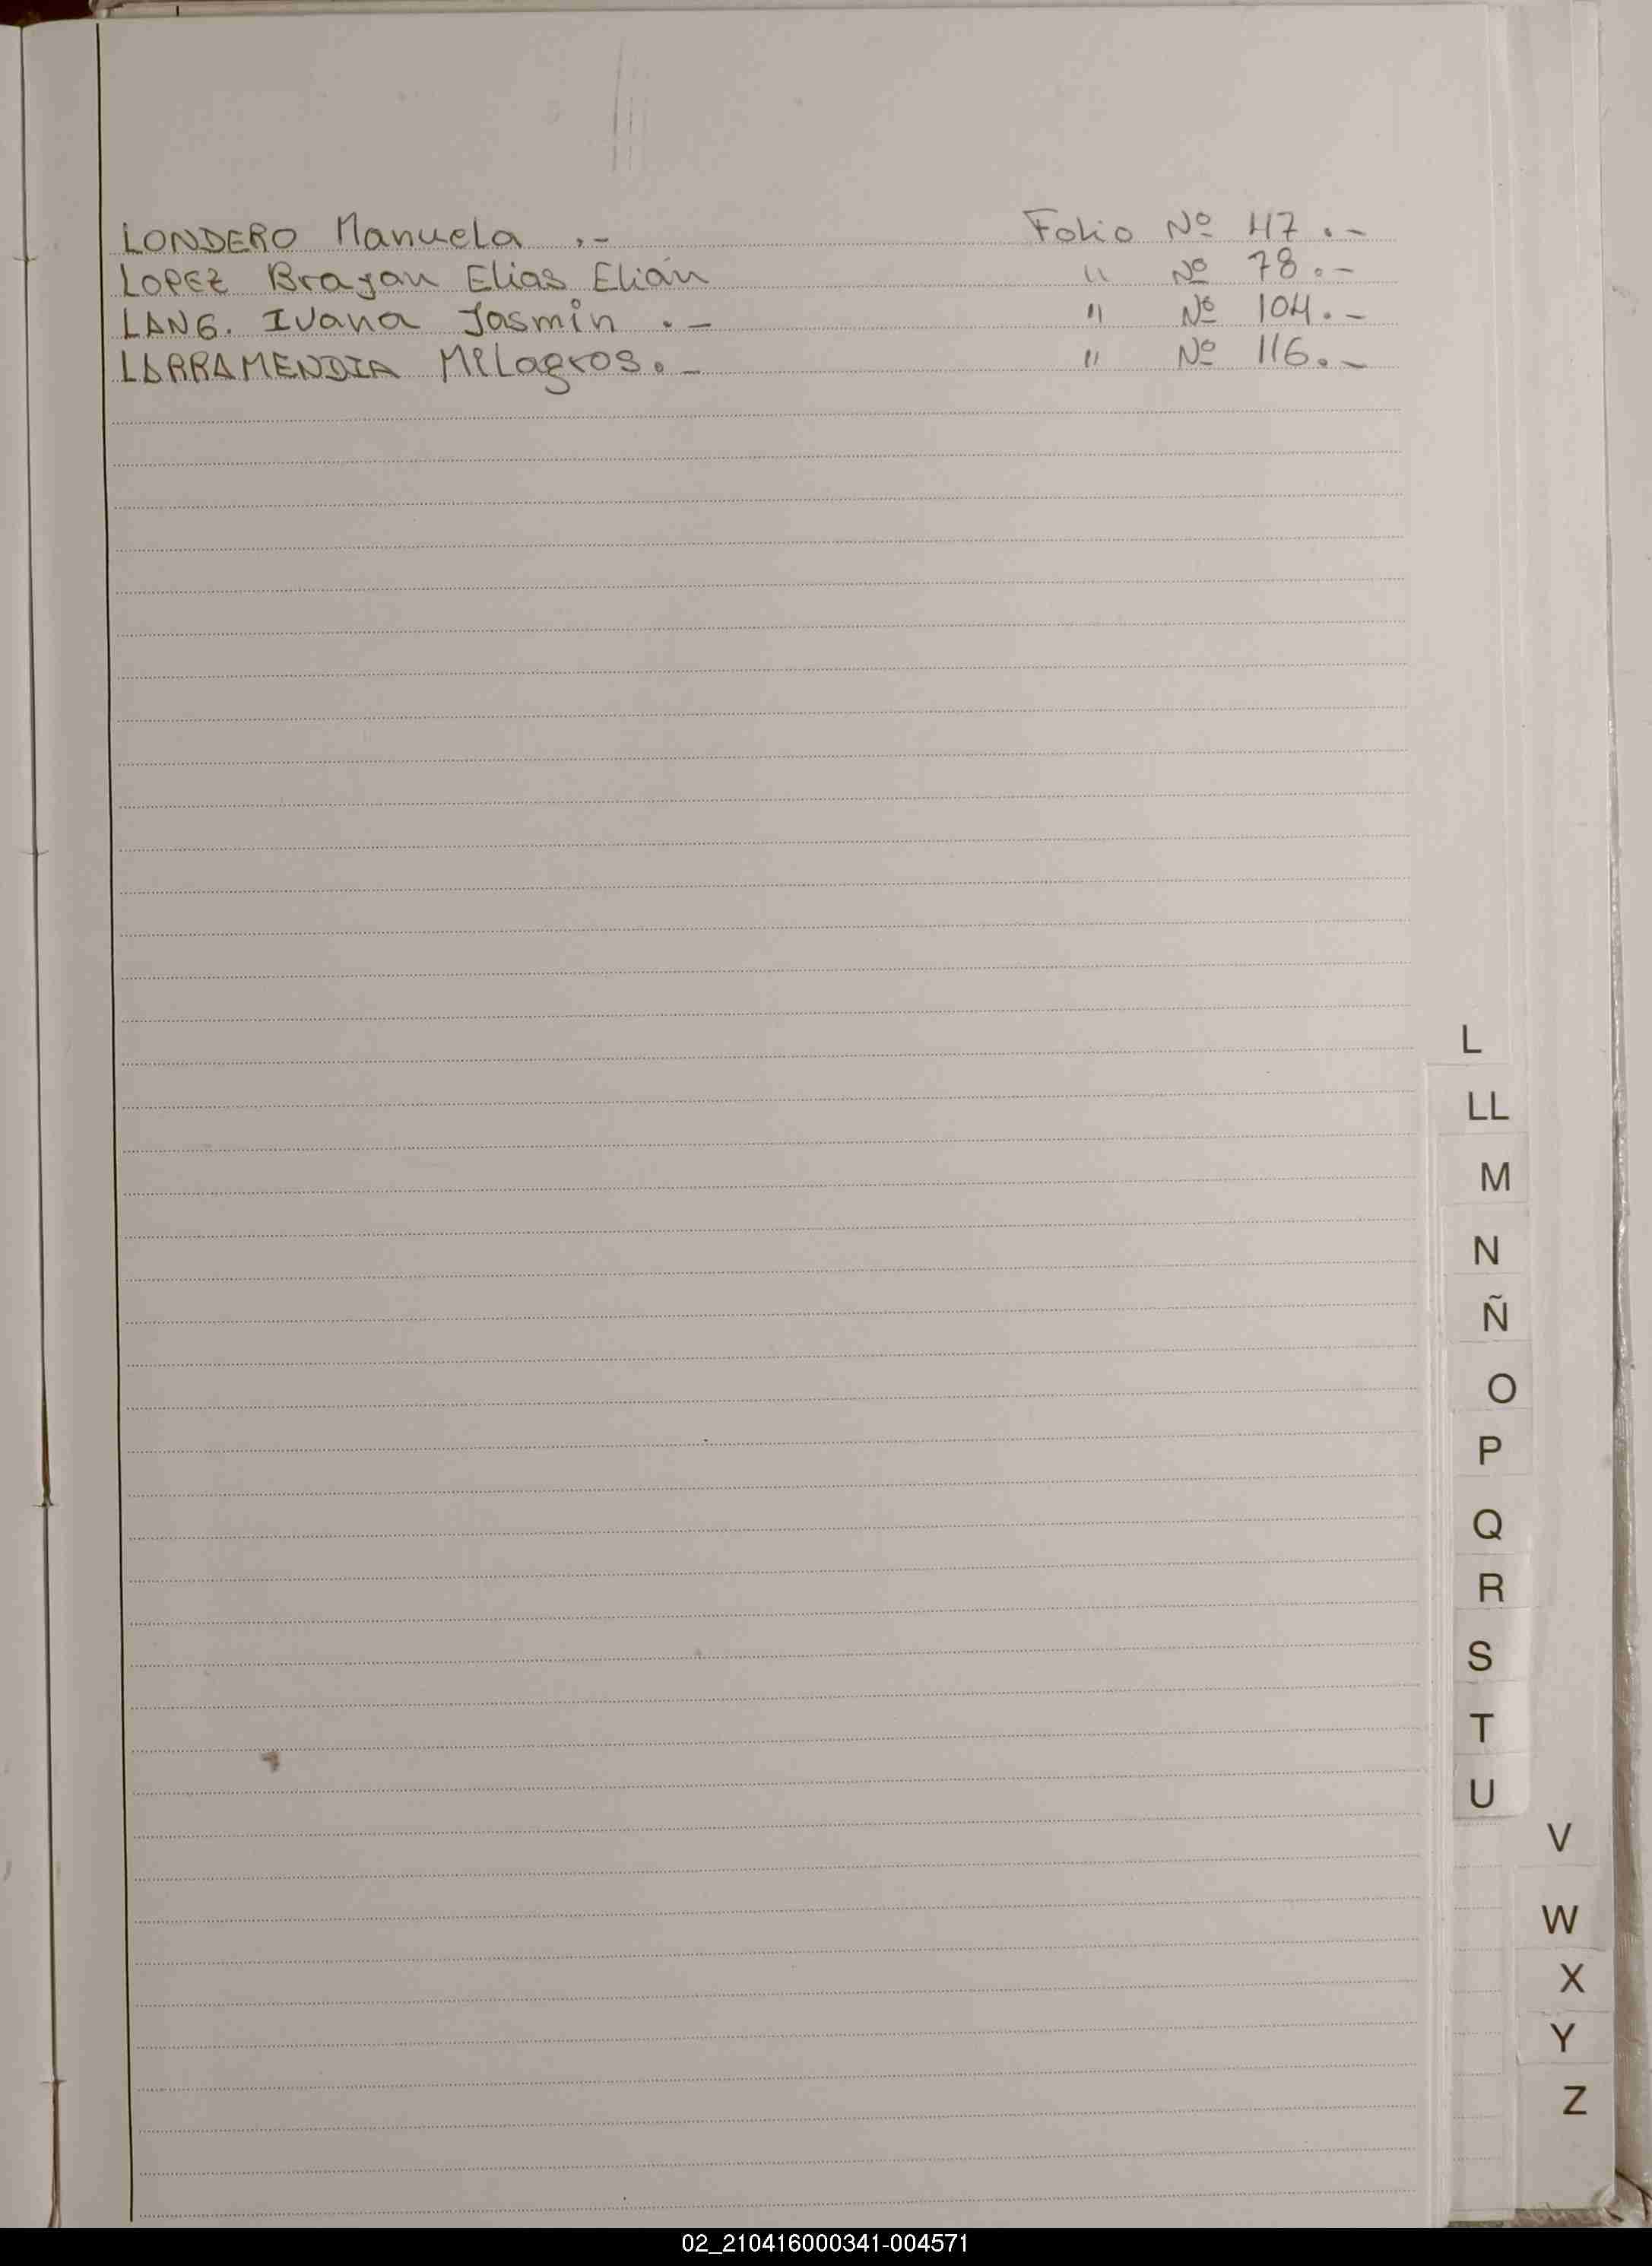 LONDERO Manuela .- Folio Nº 47.-
LOPEZ Brayan Elias Elián " Nº 78.-
LANG. Ivana Jasmin .- " Nº 104.-
LARRAMENDIA Milagros.- " Nº 116.-
L
LL
M
N
Ñ
O
P
Q
R
S
T
U
V
W
X
Y
Z
02_210416000341-004571